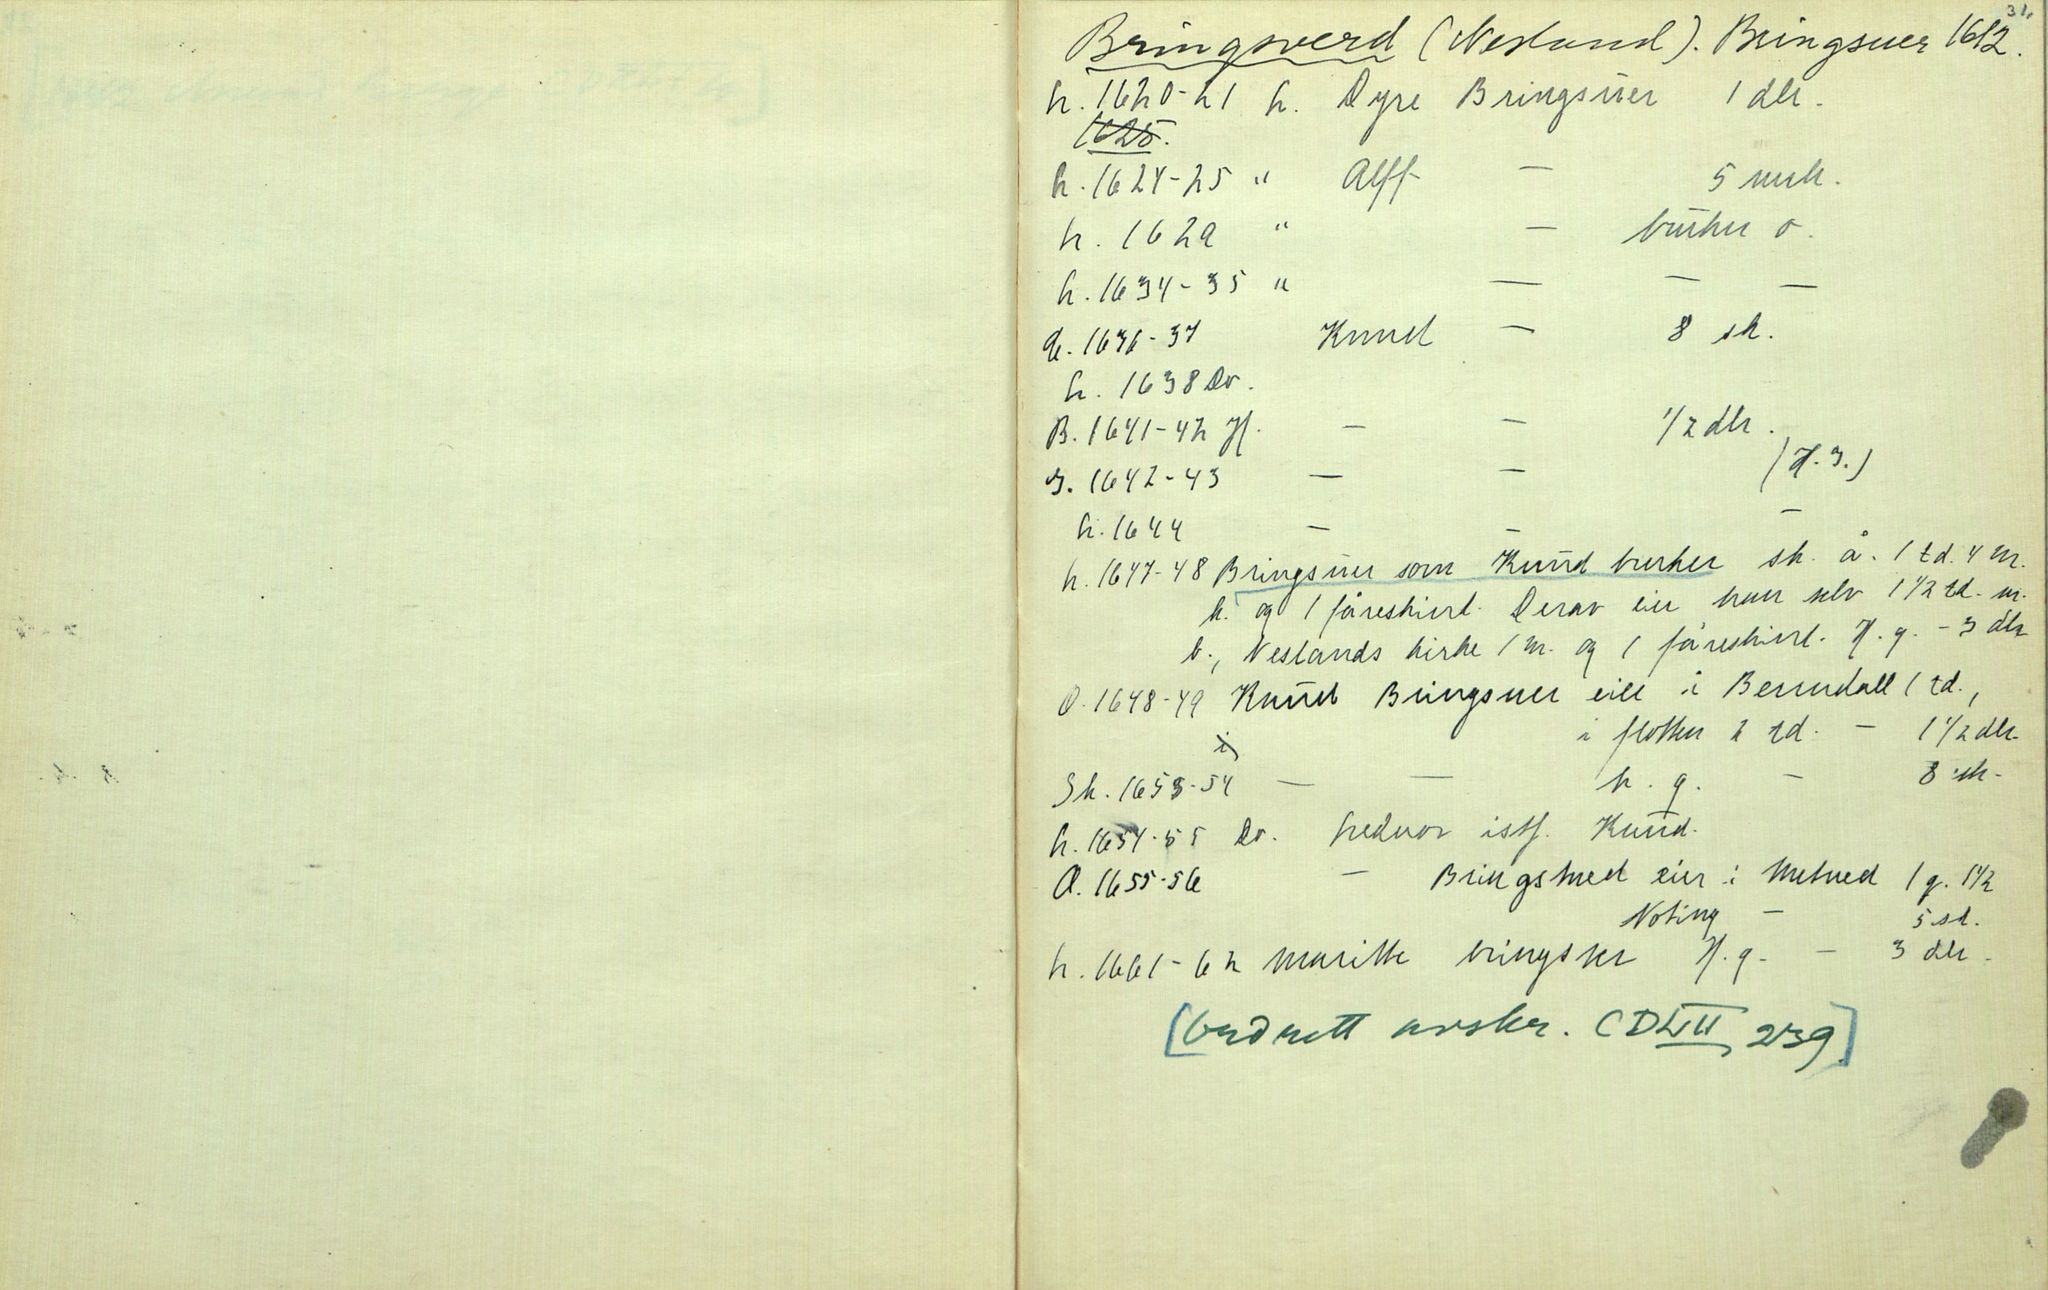 31.
Bringsverd (Nesland). Bringsuer 1612.
h. 1620-21 h. Dyre Bringsuer 1 dlr.
1625.
h. 1624-25 " Alff — 5 mrk.
h. 1629 " — bruker o.
h. 1634-35 " — — —
1636-37 Knud — 8 sk.
h. 1638 Do.
B. 1641-42 H. — — 1/2 dlr.
1642-43 — — (H. 3.)
h. 1644 — — —
h. 1647-48 Bringsuer som Knud bruker sk. å. 1 td. 4 m.
k. og 1 fåreskind. Derav eier han selv 1 1/2 td. m.
b., Neslands kirke 1 m. og 1 fåreskind. H. g. - 3 dlr
O. 1648-49 Knud Bringsuer eier i Berrudall 1 td.,
i flotten 2 td. — 1 1/2 dlr.
Sk. 1653-54 — — h. g. — 8 sk.
h. 1654-55 Do. hedvor istf. Knud.
O. 1655-56 — Bringsued eier i 1 g. 1 1/2
Noting — 5 sk.
h. 1661-62 Maritte bringsuer H. g. — 3 dlr.
[ordrett avskr. CDLVII, 239]